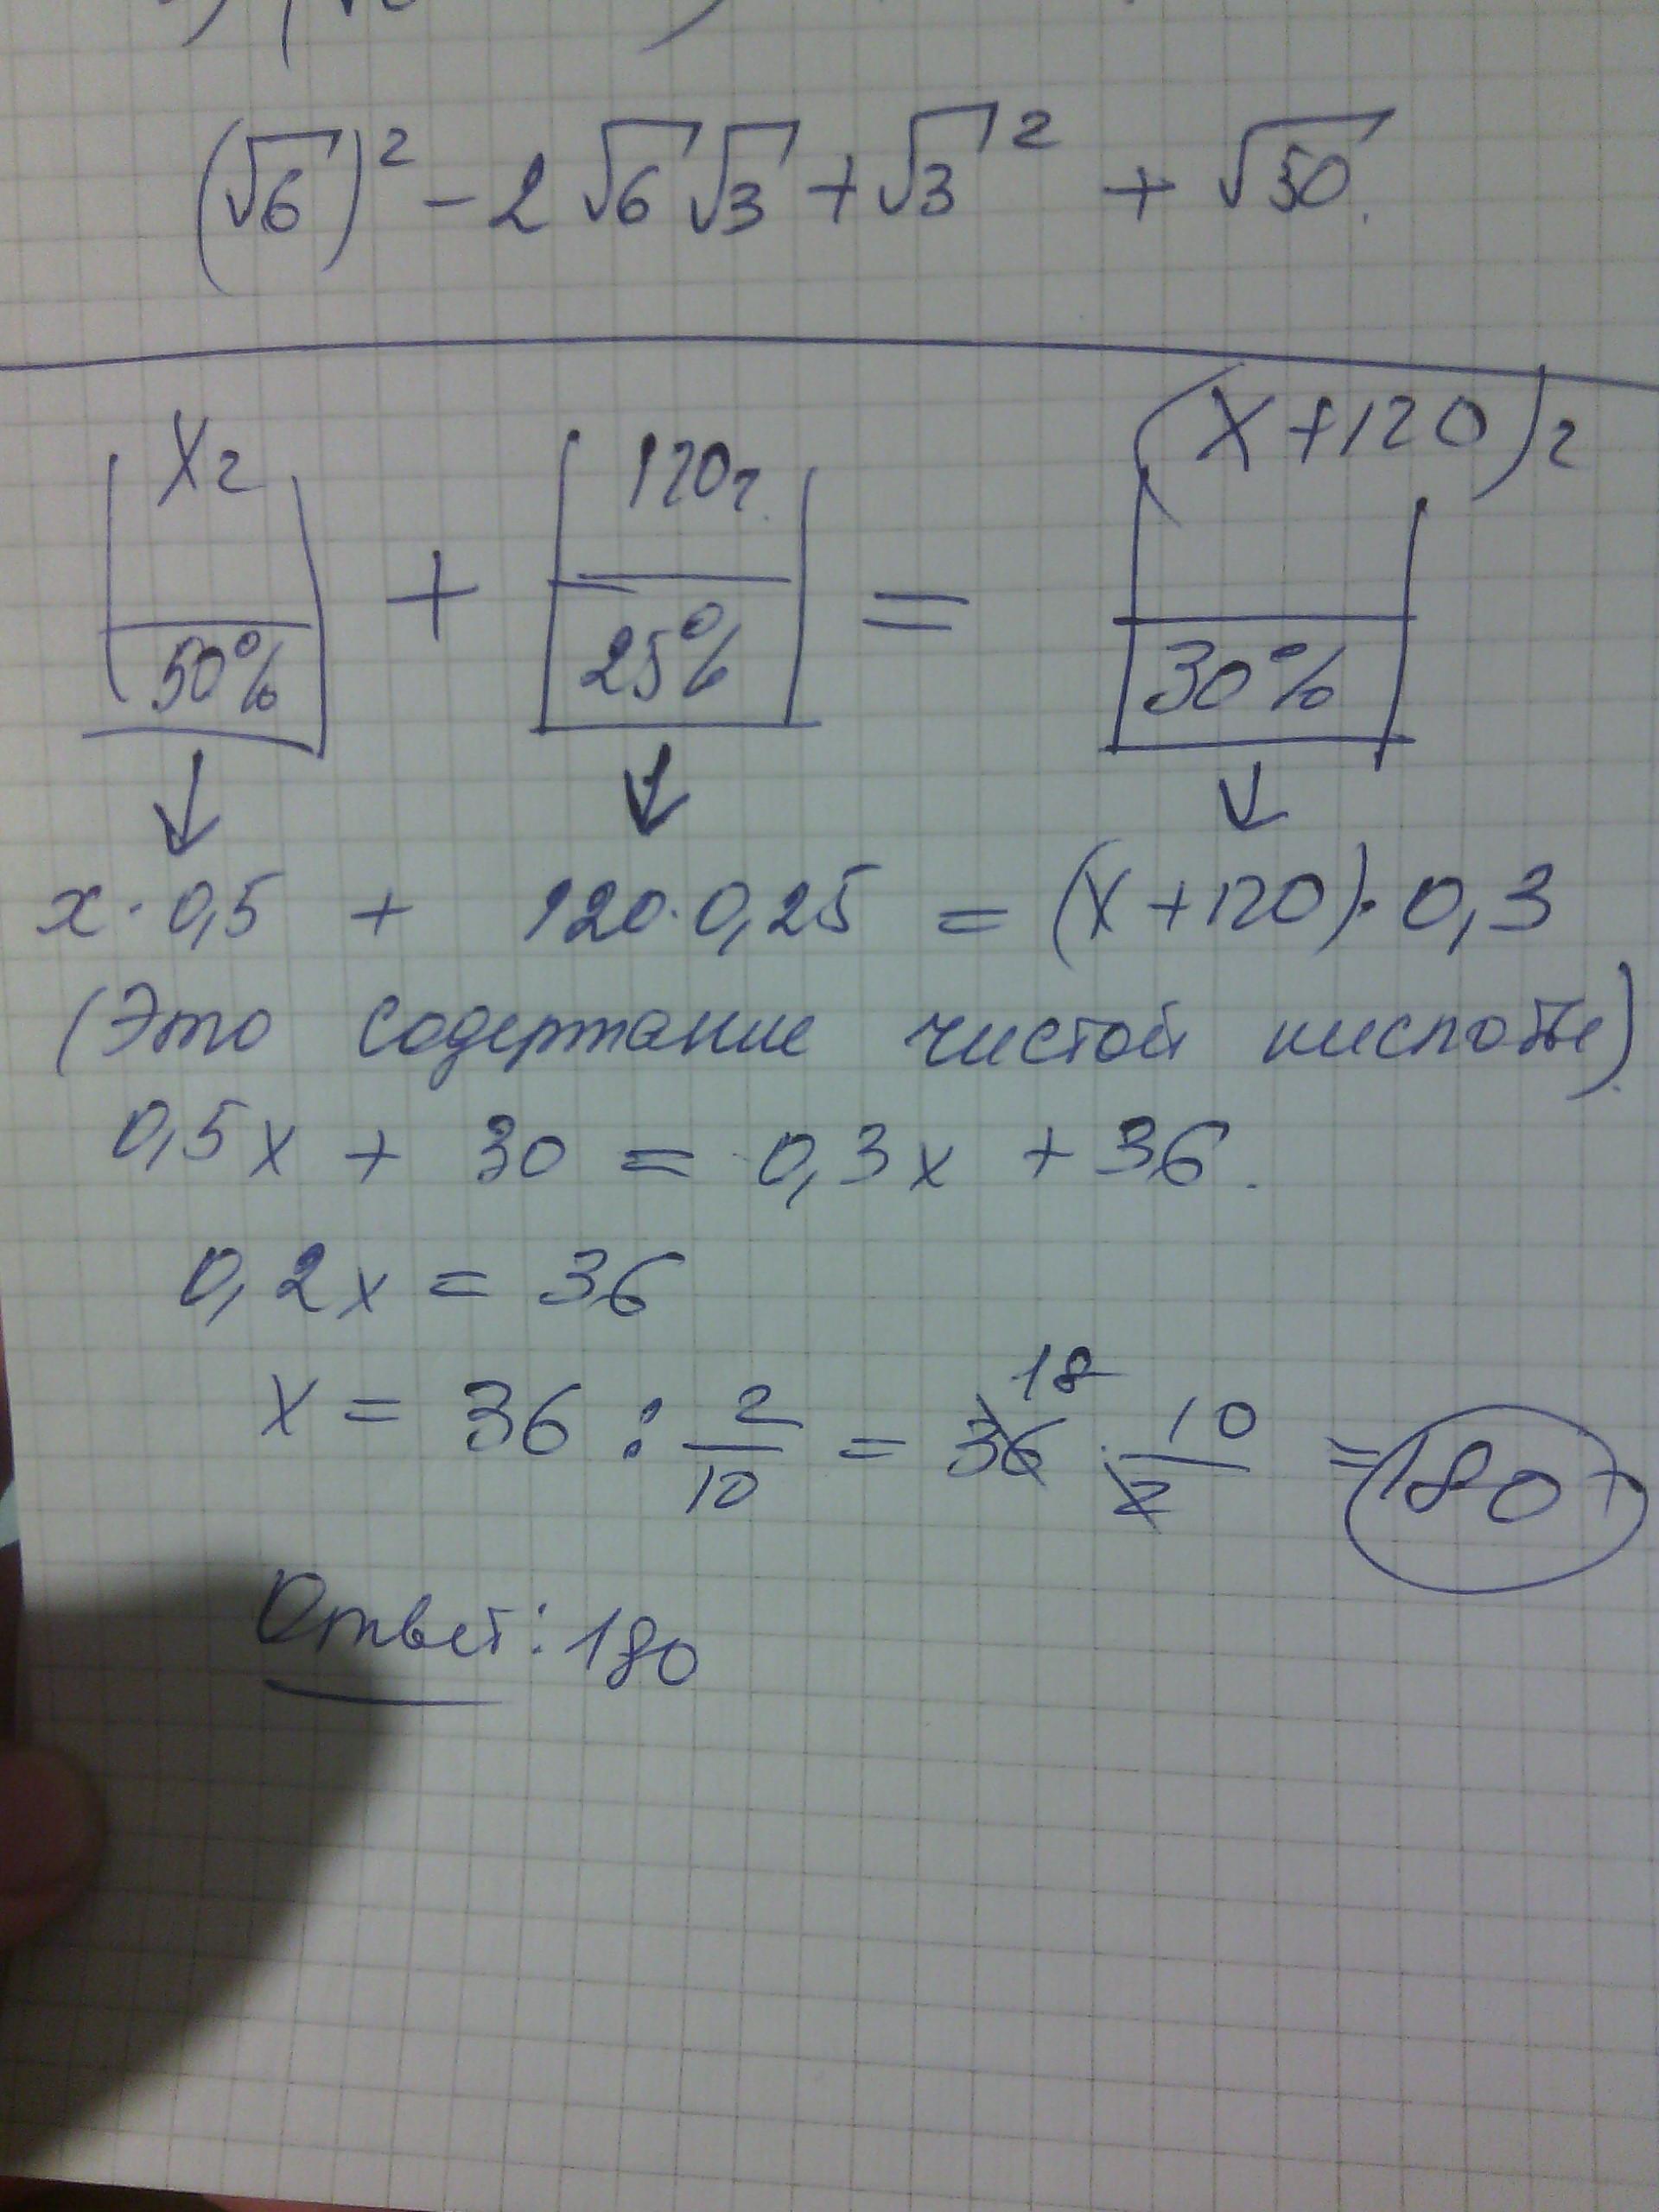 (√6)² - 2√6√3 + √3² + √50.
xг 120г (x+120)г
50% + 25% = 30%
x·0,5 + 120·0,25 = (x+120)·0,3
(Это содержание чистой кислоты)
0,5x + 30 = 0,3x + 36.
0,2x = 36
18
x = 36 : 2/10 = 36 · 10/2 = 180г
Ответ: 180